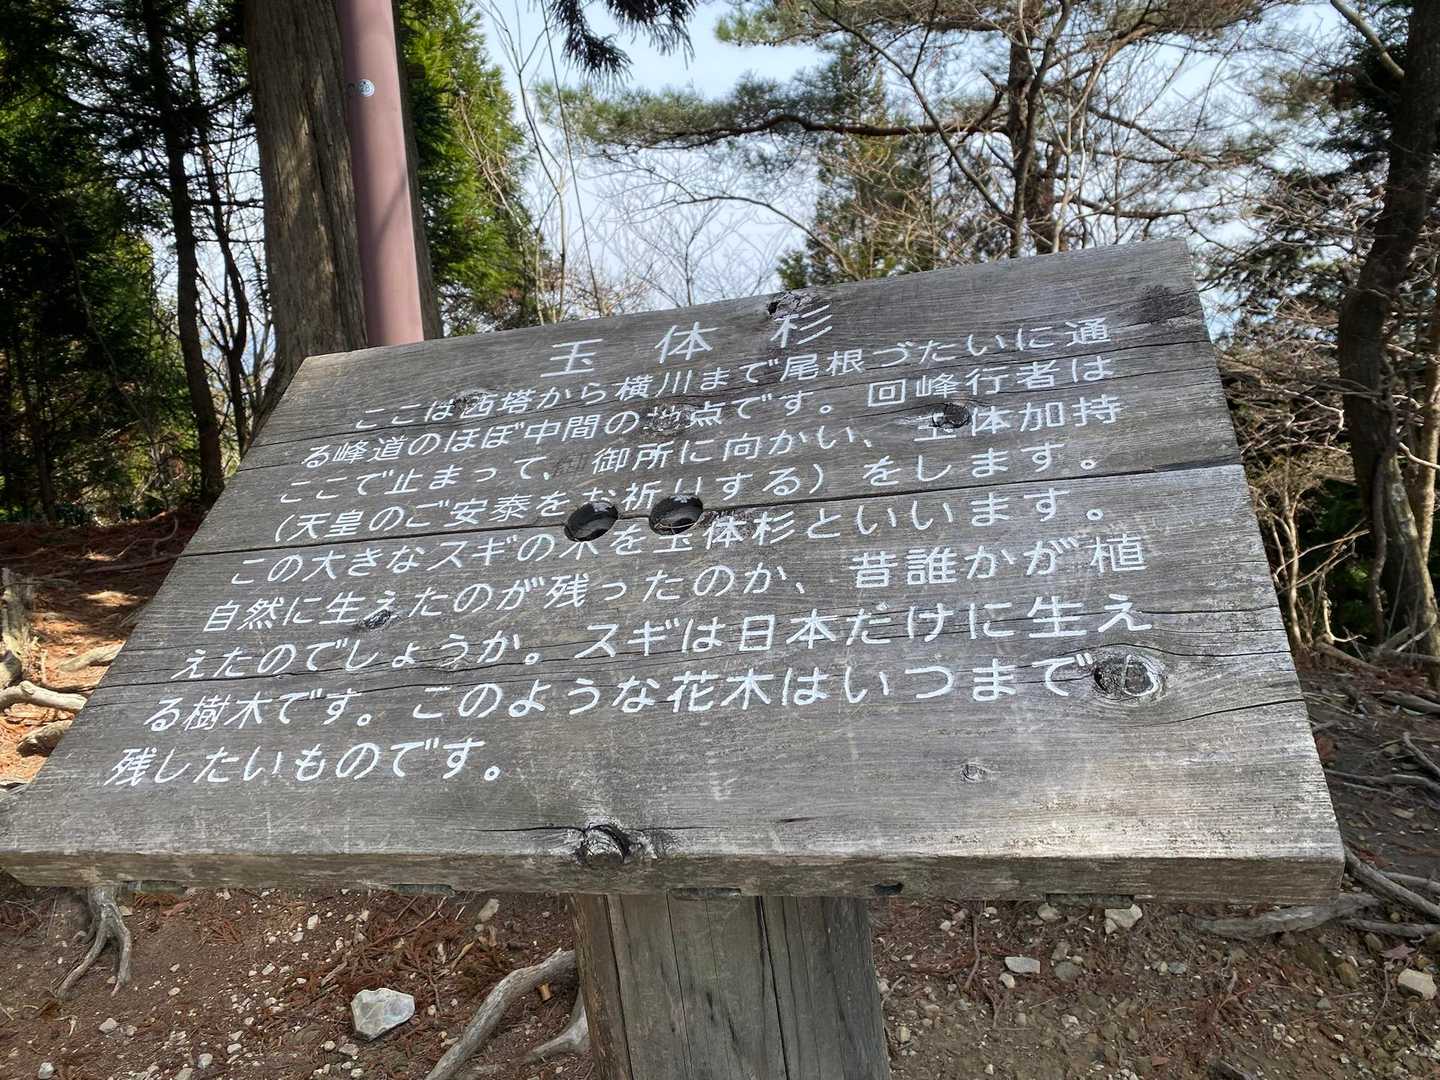 玉体杉
ここは西塔から横川まで尾根づたいに通
る峰道のほぼ中間の地点です。回峰行者は
ここで止まって、御所に向かい、玉体加持
（天皇のご安泰をお祈りする）をします。
この大きなスギの木を玉体杉といいます。
自然に生えたのが残ったのか、昔誰かが植
えたのでしょうか。スギは日本だけに生え
る樹木です。このような花木はいつまで
残したいものです。